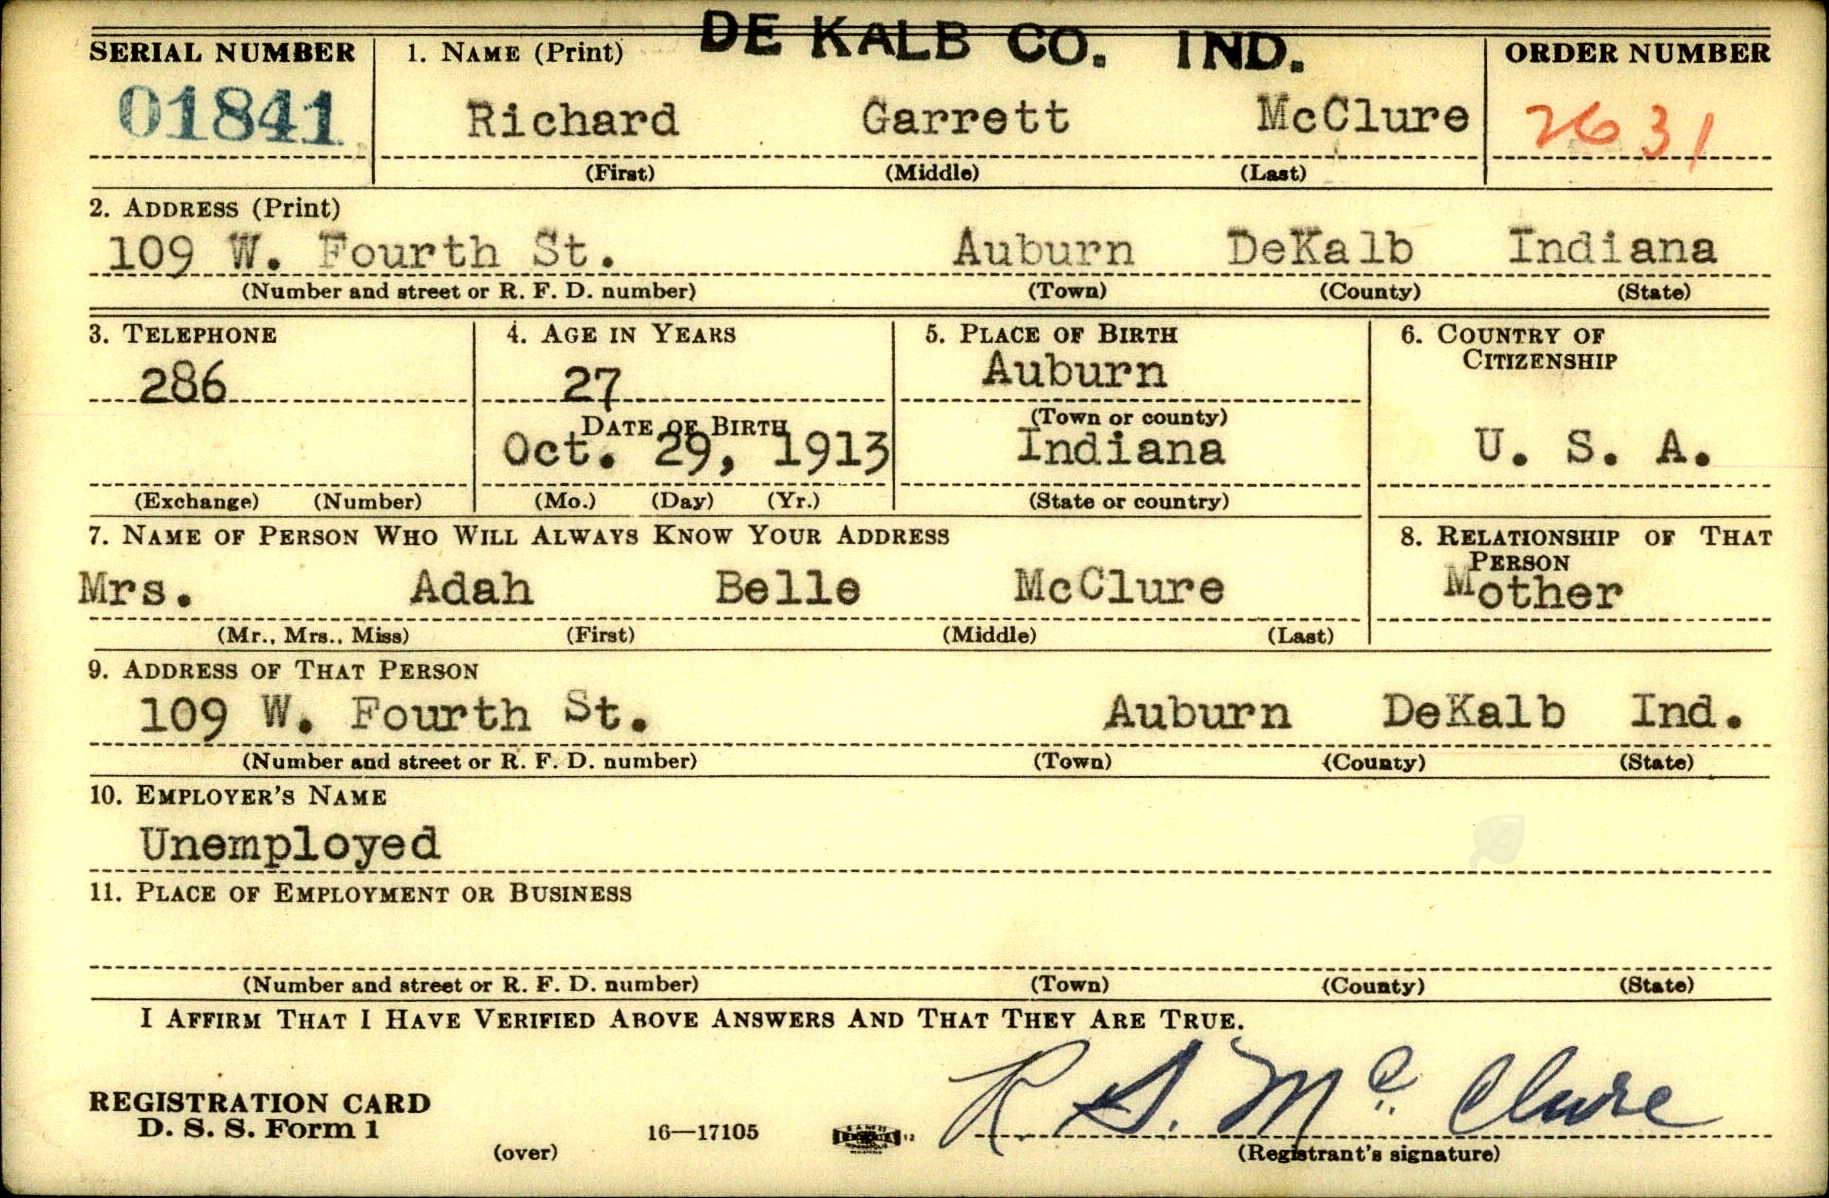 DE KALB CO. IND.
SERIAL NUMBER 1. NAME (Print) ORDER NUMBER
01841 Richard Garrett McClure 2631
(First) (Middle) (Last)
2. ADDRESS (Print)
109 W. Fourth St. Auburn DeKalb Indiana
(Number and street or R. F. D. number) (Town) (County) (State)
3. TELEPHONE 4. AGE IN YEARS 5. PLACE OF BIRTH 6. COUNTRY OF CITIZENSHIP
286 27 Auburn
DATE OF BIRTH (Town or county)
Oct. 29, 1913 Indiana U. S. A.
(Exchange) (Number) (Mo.) (Day) (Yr.) (State or country)
7. NAME OF PERSON WHO WILL ALWAYS KNOW YOUR ADDRESS 8. RELATIONSHIP OF THAT PERSON
Mrs. Adah Belle McClure Mother
(Mr., Mrs., Miss) (First) (Middle) (Last)
9. ADDRESS OF THAT PERSON
109 W. Fourth St. Auburn DeKalb Ind.
(Number and street or R. F. D. number) (Town) (County) (State)
10. EMPLOYER'S NAME
Unemployed
11. PLACE OF EMPLOYMENT OR BUSINESS
(Number and street or R. F. D. number) (Town) (County) (State)
I AFFIRM THAT I HAVE VERIFIED ABOVE ANSWERS AND THAT THEY ARE TRUE.
R. G. McClure
REGISTRATION CARD
D. S. S. Form 1 16—17105 12
(over) (Registrant's signature)